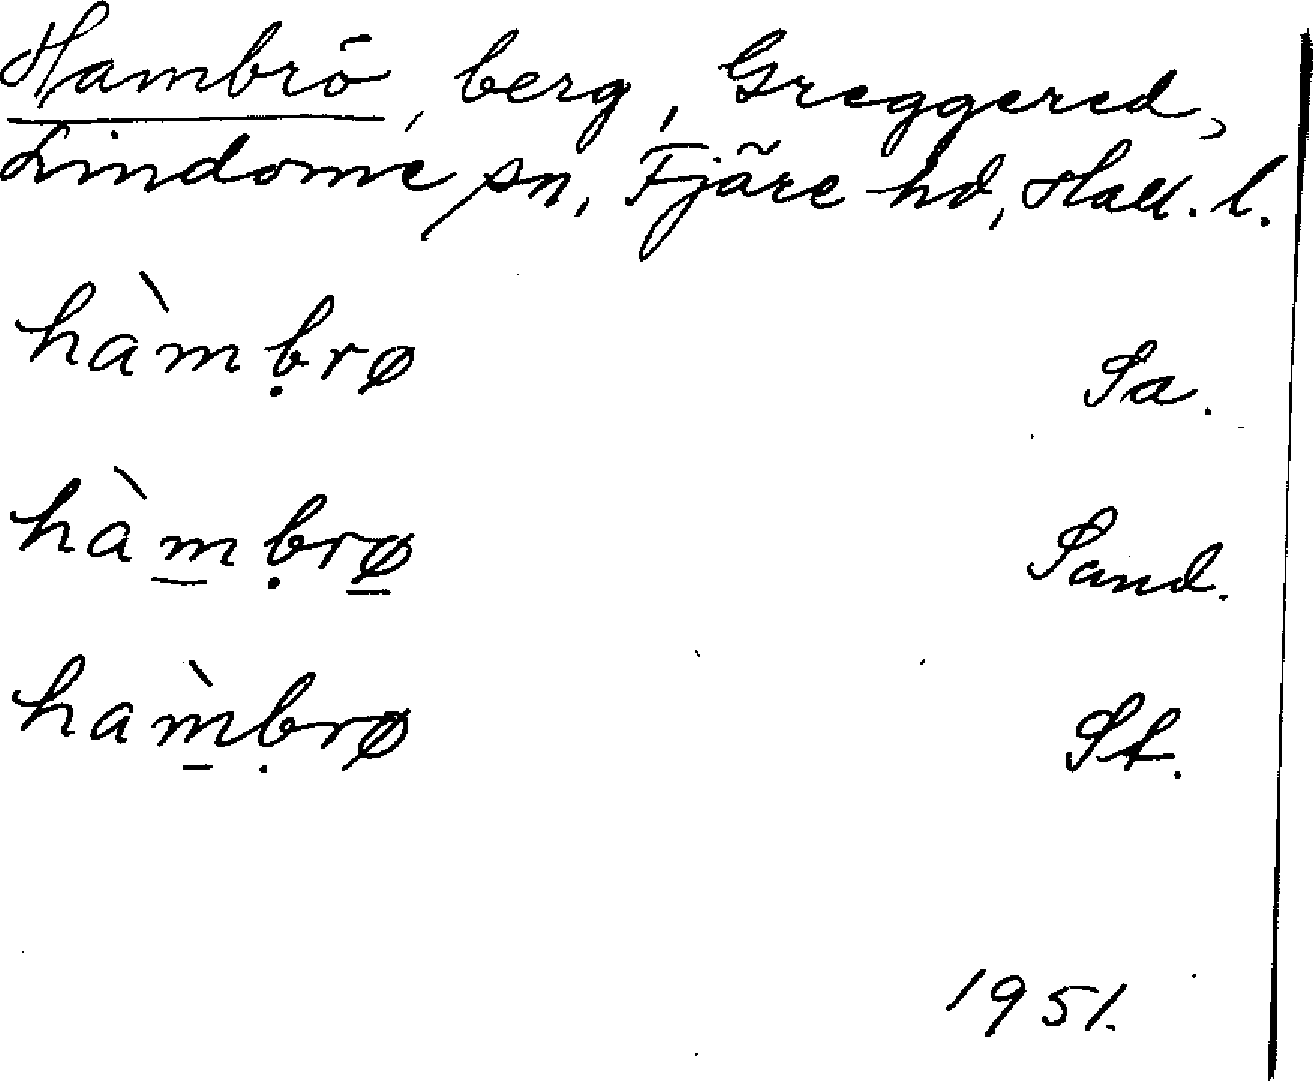 Hambrö, berg, Greggered,
Lindome sn, Fjäre hd, Hall. l.
hàmḅrø Sa.
hàm̲ḅrø̲ Sand.
ham̲̀ḅrø St.
1951.